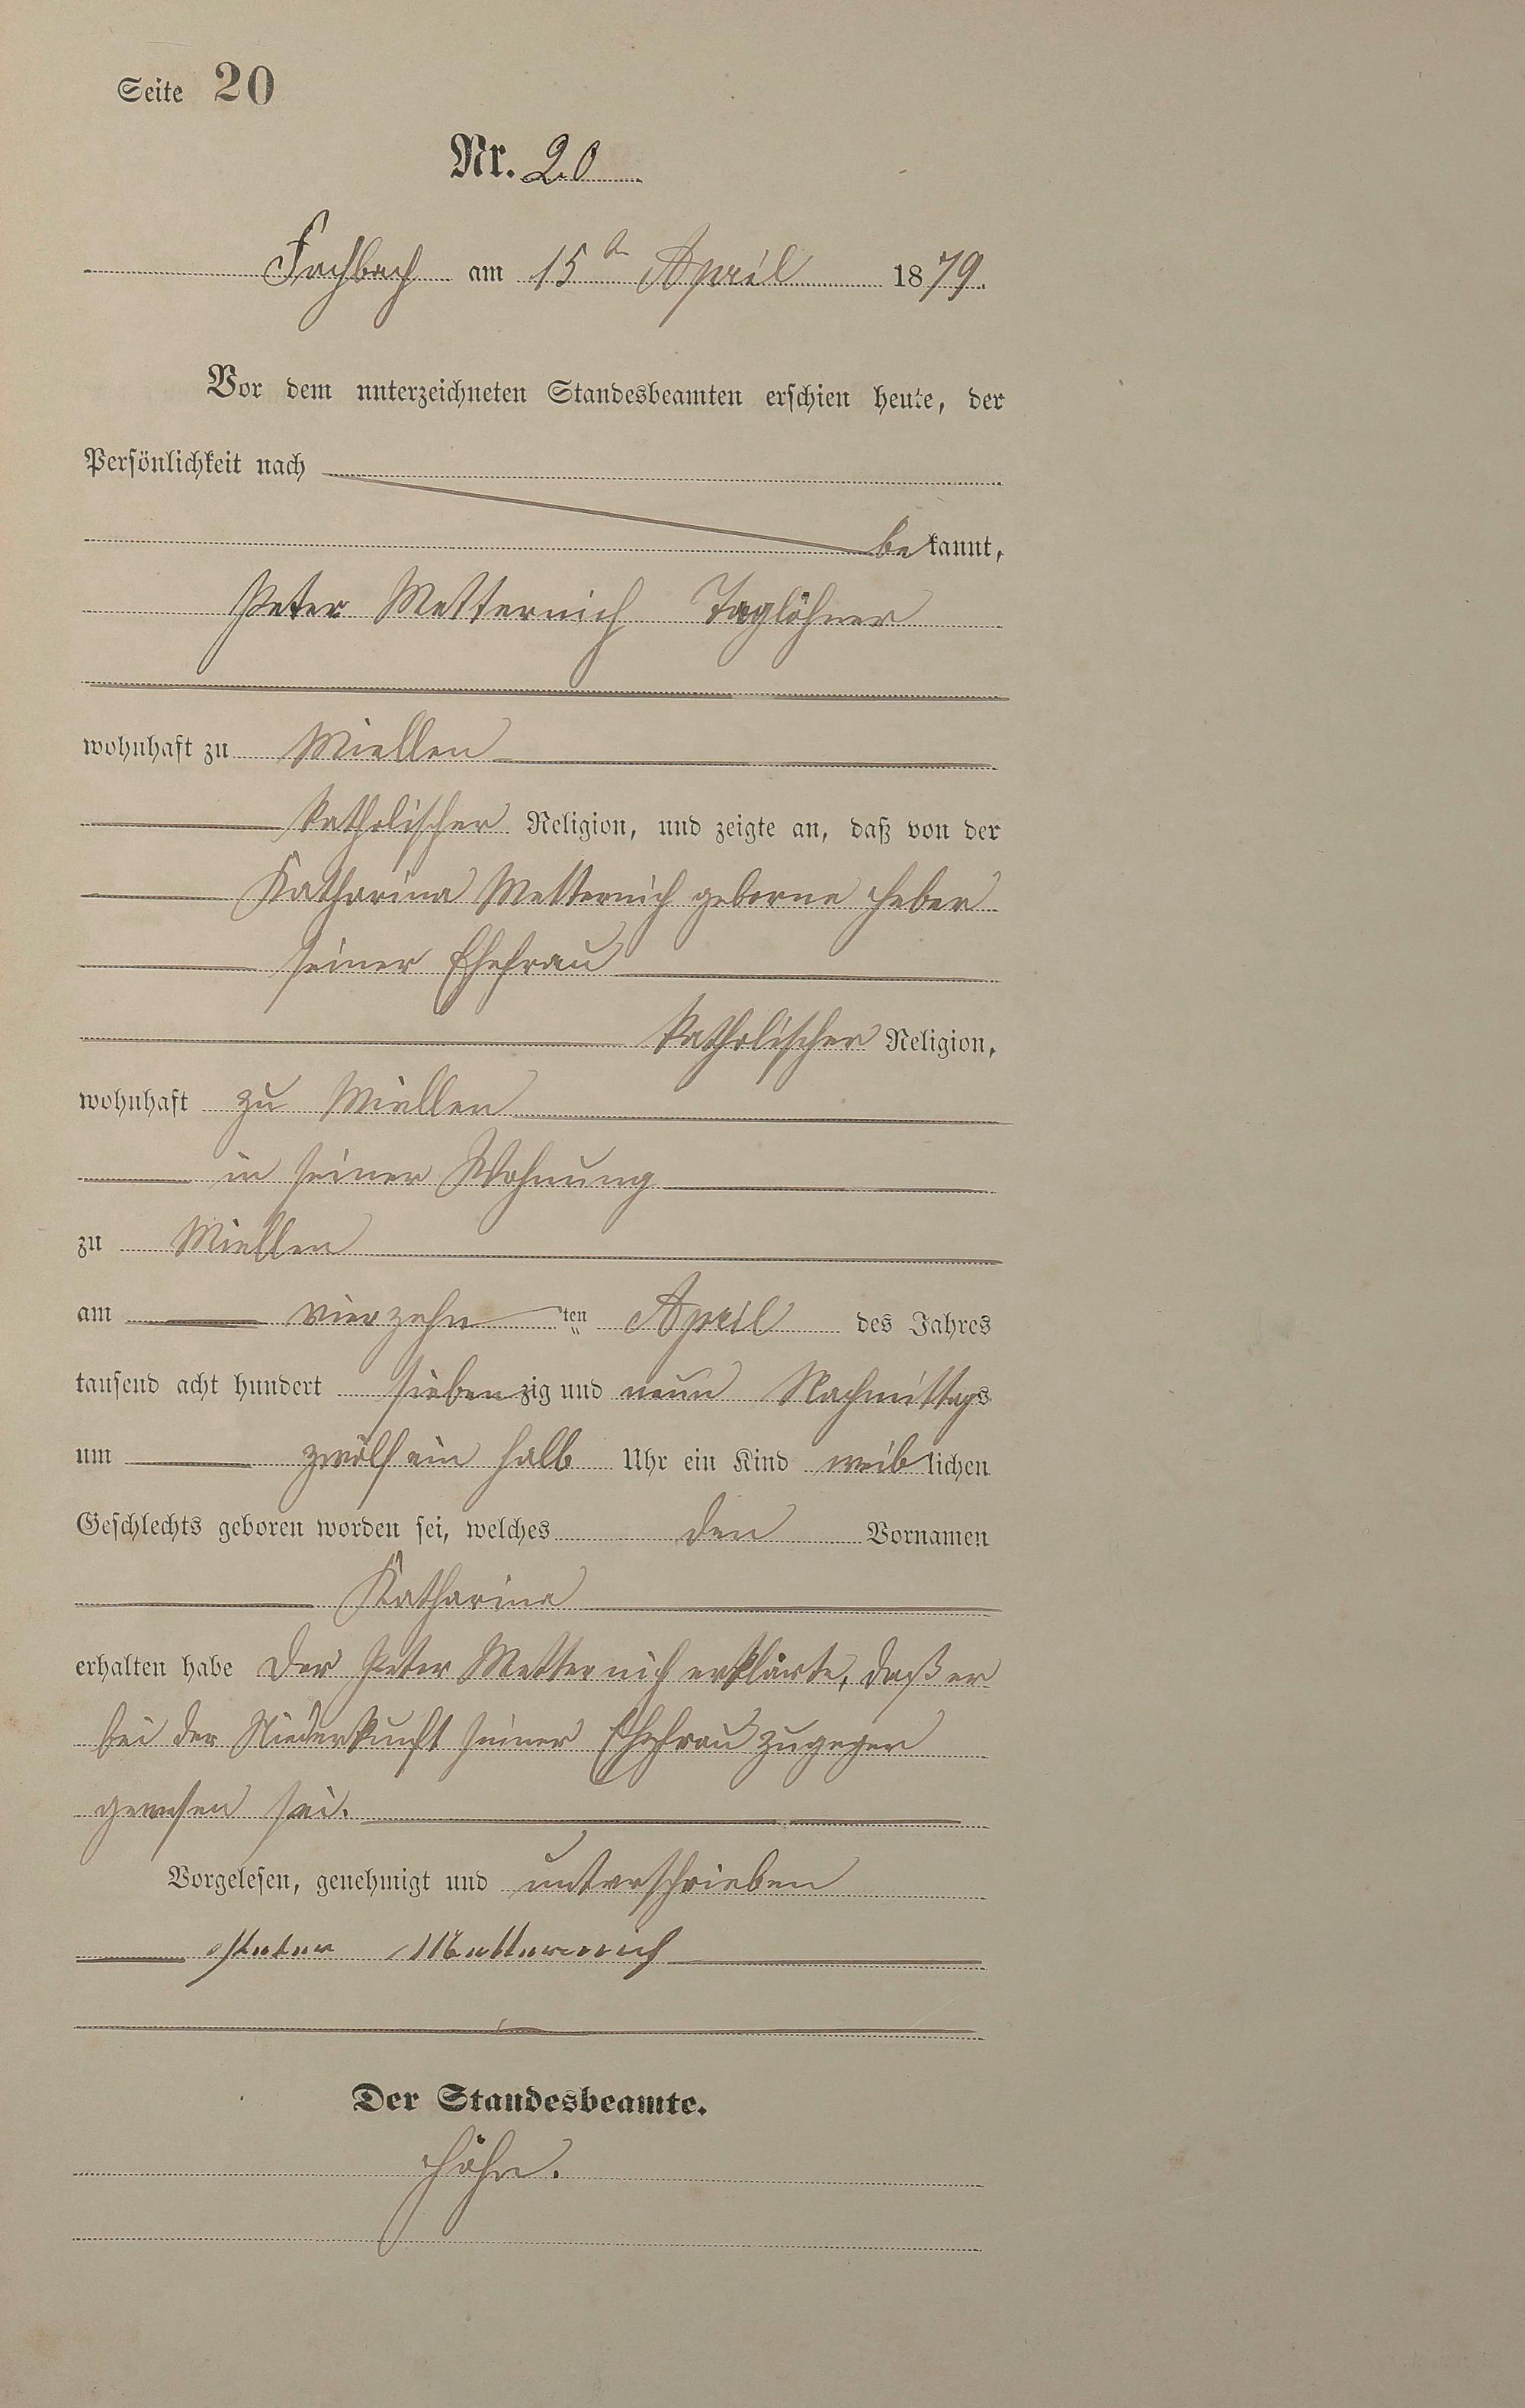 Seite 20
Nr. 20
Fachbach am 15ten April 1879.
Vor dem unterzeichneten Standesbeamten erschien heute, der
Persönlichkeit nach
bekannt,
Peter Metternich Taglöhner
wohnhaft zu Miellen
katholischer Religion, und zeigte an, daß von der
Katharina Metternich geborne Heber
seiner Ehefrau
katholischer Religion,
wohnhaft zu Miellen
in seiner Wohnung
zu Miellen
am vierzehn ten April des Jahres
tausend acht hundert siebenzig und neun Nachmittags
um zwölf ein halb Uhr ein Kind weiblichen
Geschlechts geboren worden sei, welches den Vornamen
Katharina
erhalten habe Der Peter Metternich erklärte, daß er
bei der Niederkunft seiner Ehefrau zugegen
gewesen sei.
Vorgelesen, genehmigt und unterschrieben
Peter Metternich
Der Standesbeamte.
Höhn.